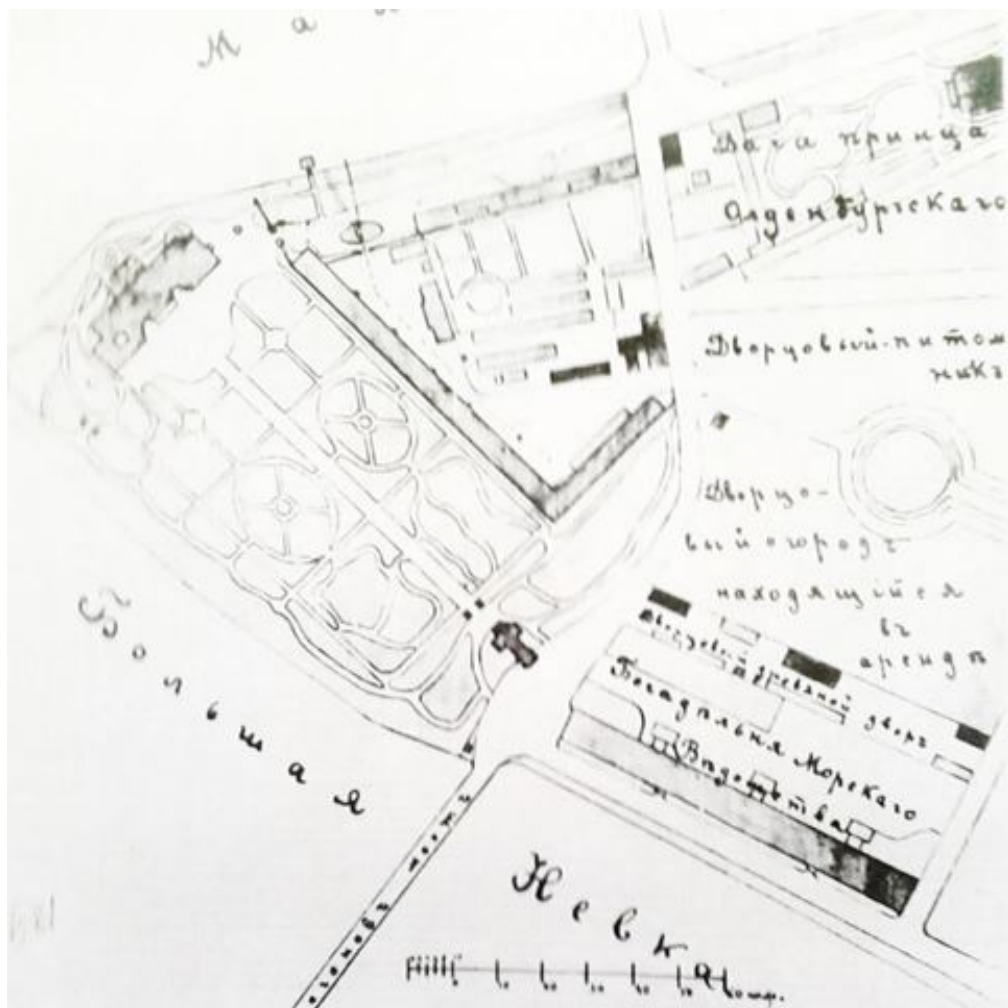 Ма
Дача принца
Ольденбургскаго
Дворцовый-питом
никъ
Дворцо-
вый огородъ
находящійся
въ
арендѣ
Дворцовый дровяной дворъ
Богадѣльня Морскаго
Вѣдомства
Большая
Невка
мостъ